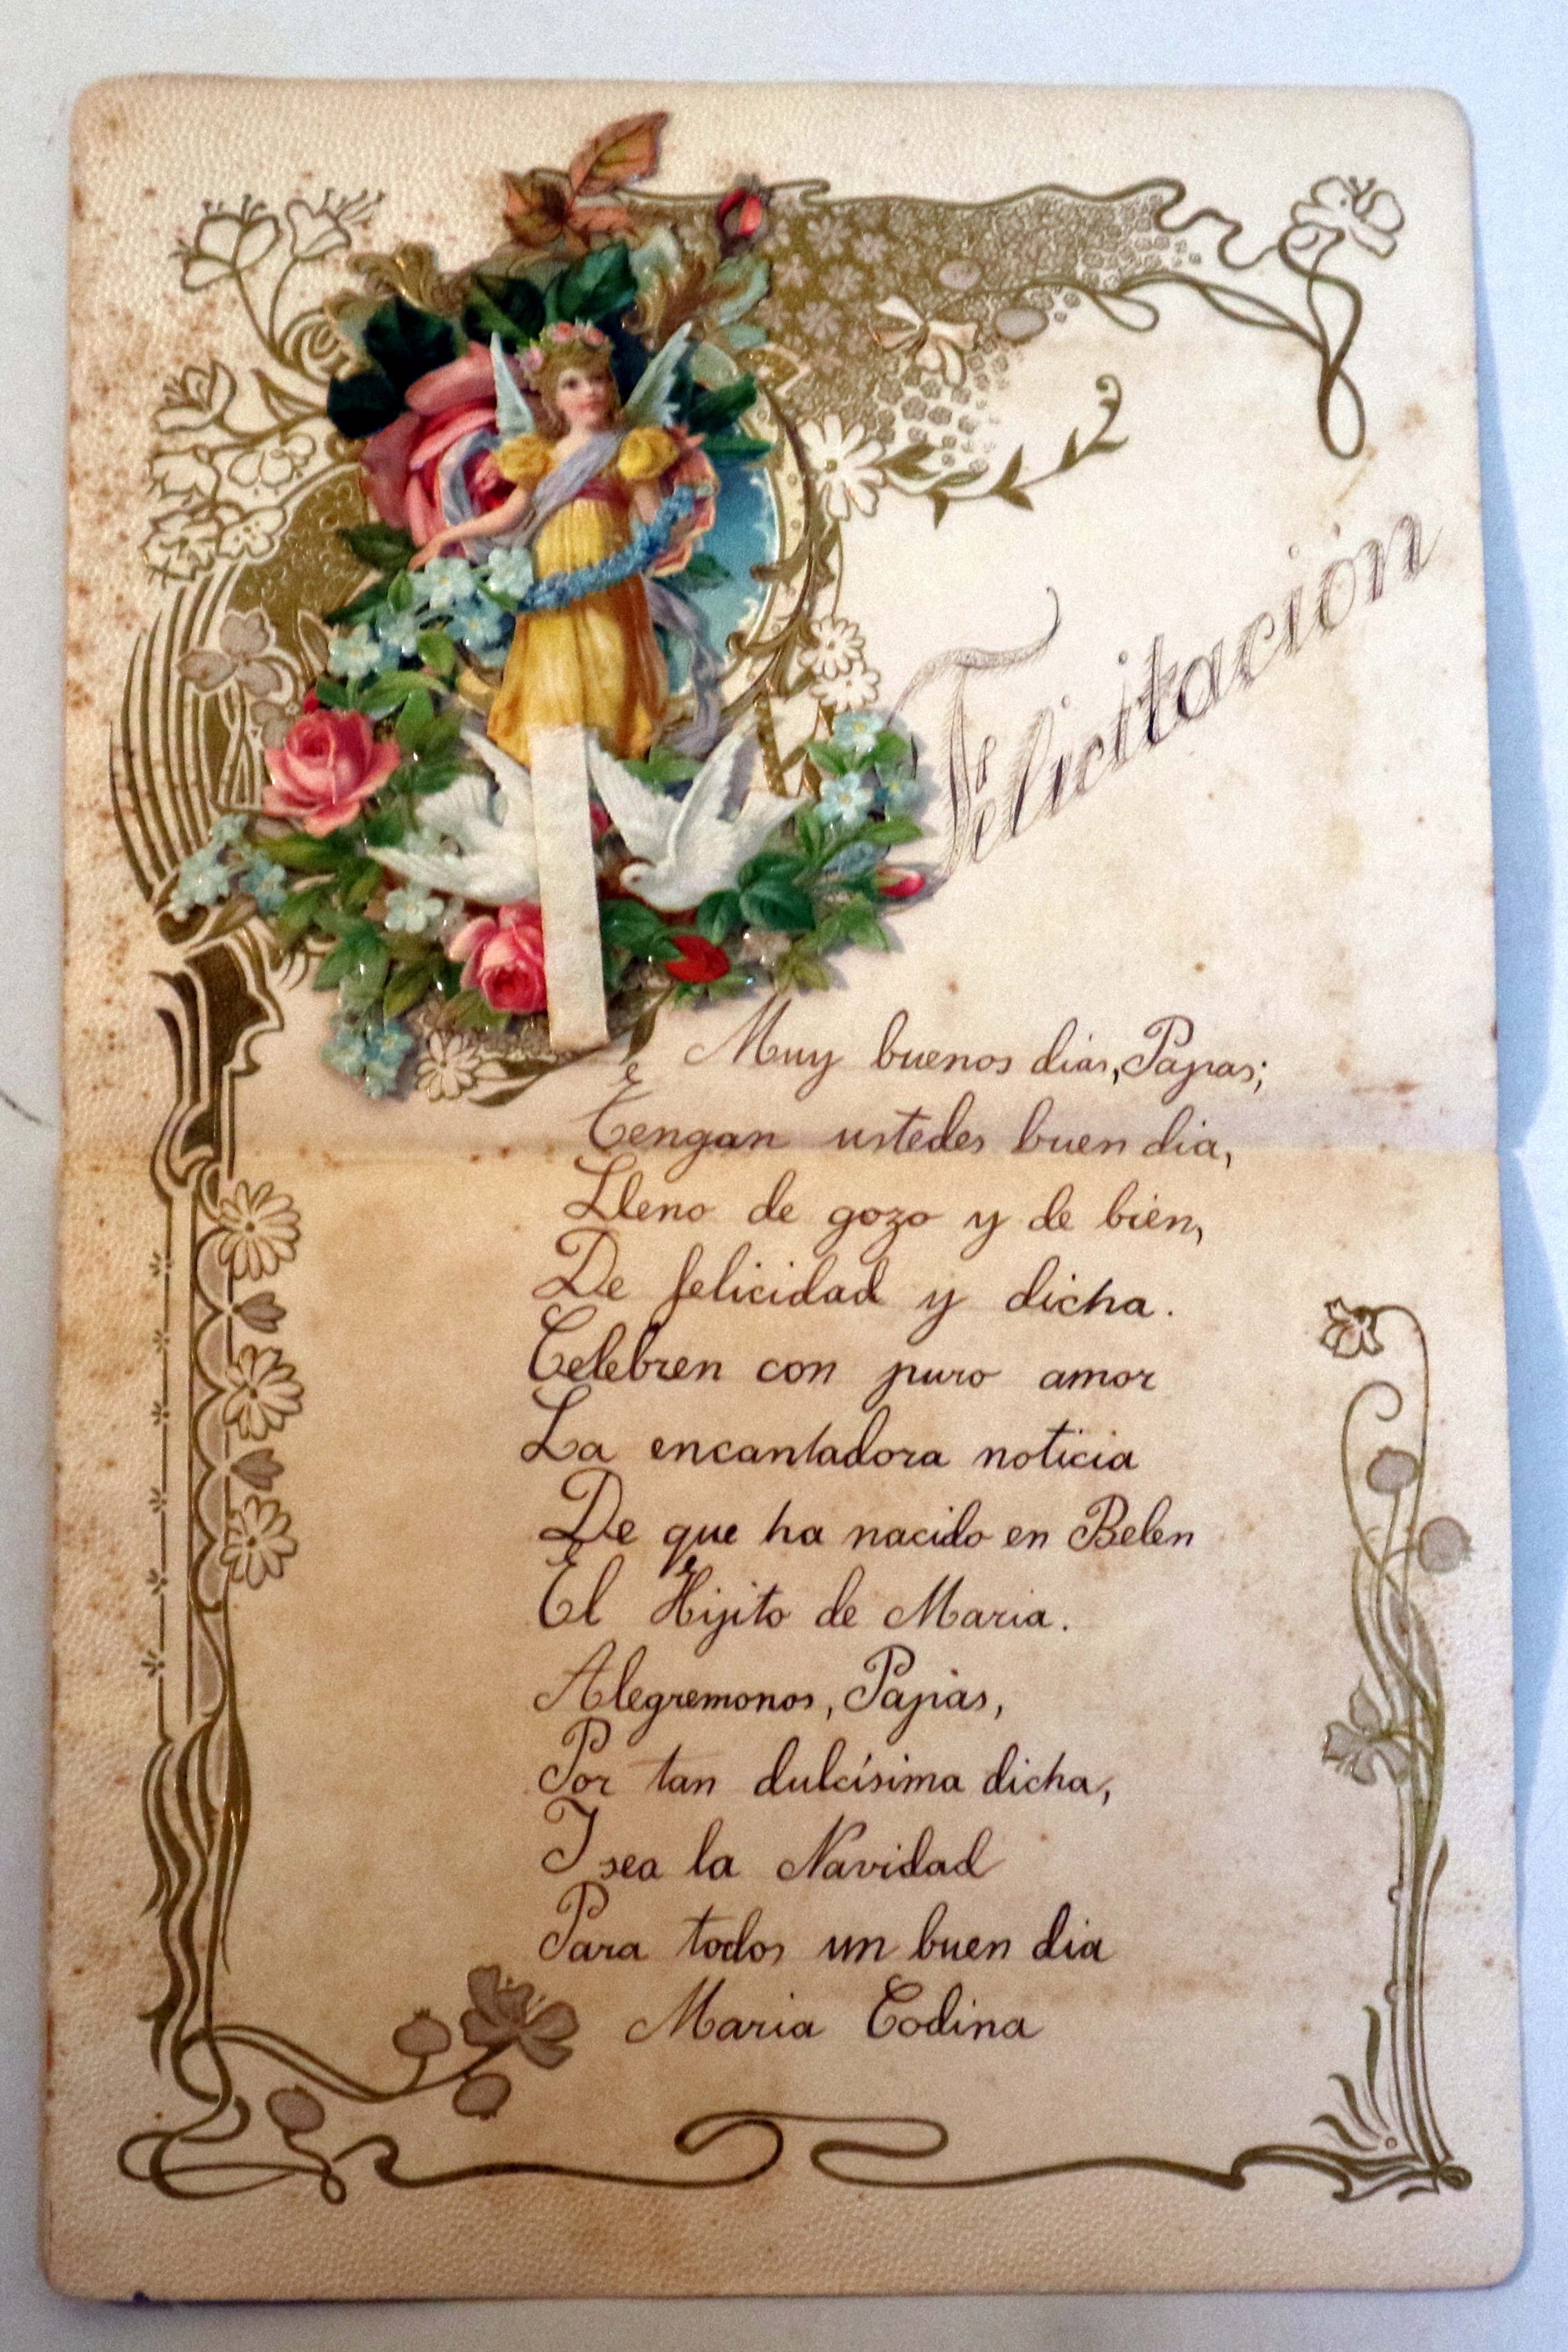 Felicitación
Muy buenos dias, Papas;
Tengan ustedes buen dia,
Lleno de gozo y de bien,
De felicidad y dicha.
Celebren con puro amor
La encantadora noticia
De que ha nacido en Belen
El Hijito de Maria.
Alegremonos, Papas,
Por tan dulcísima dicha,
I sea la Navidad
Para todos un buen dia
Maria Codina